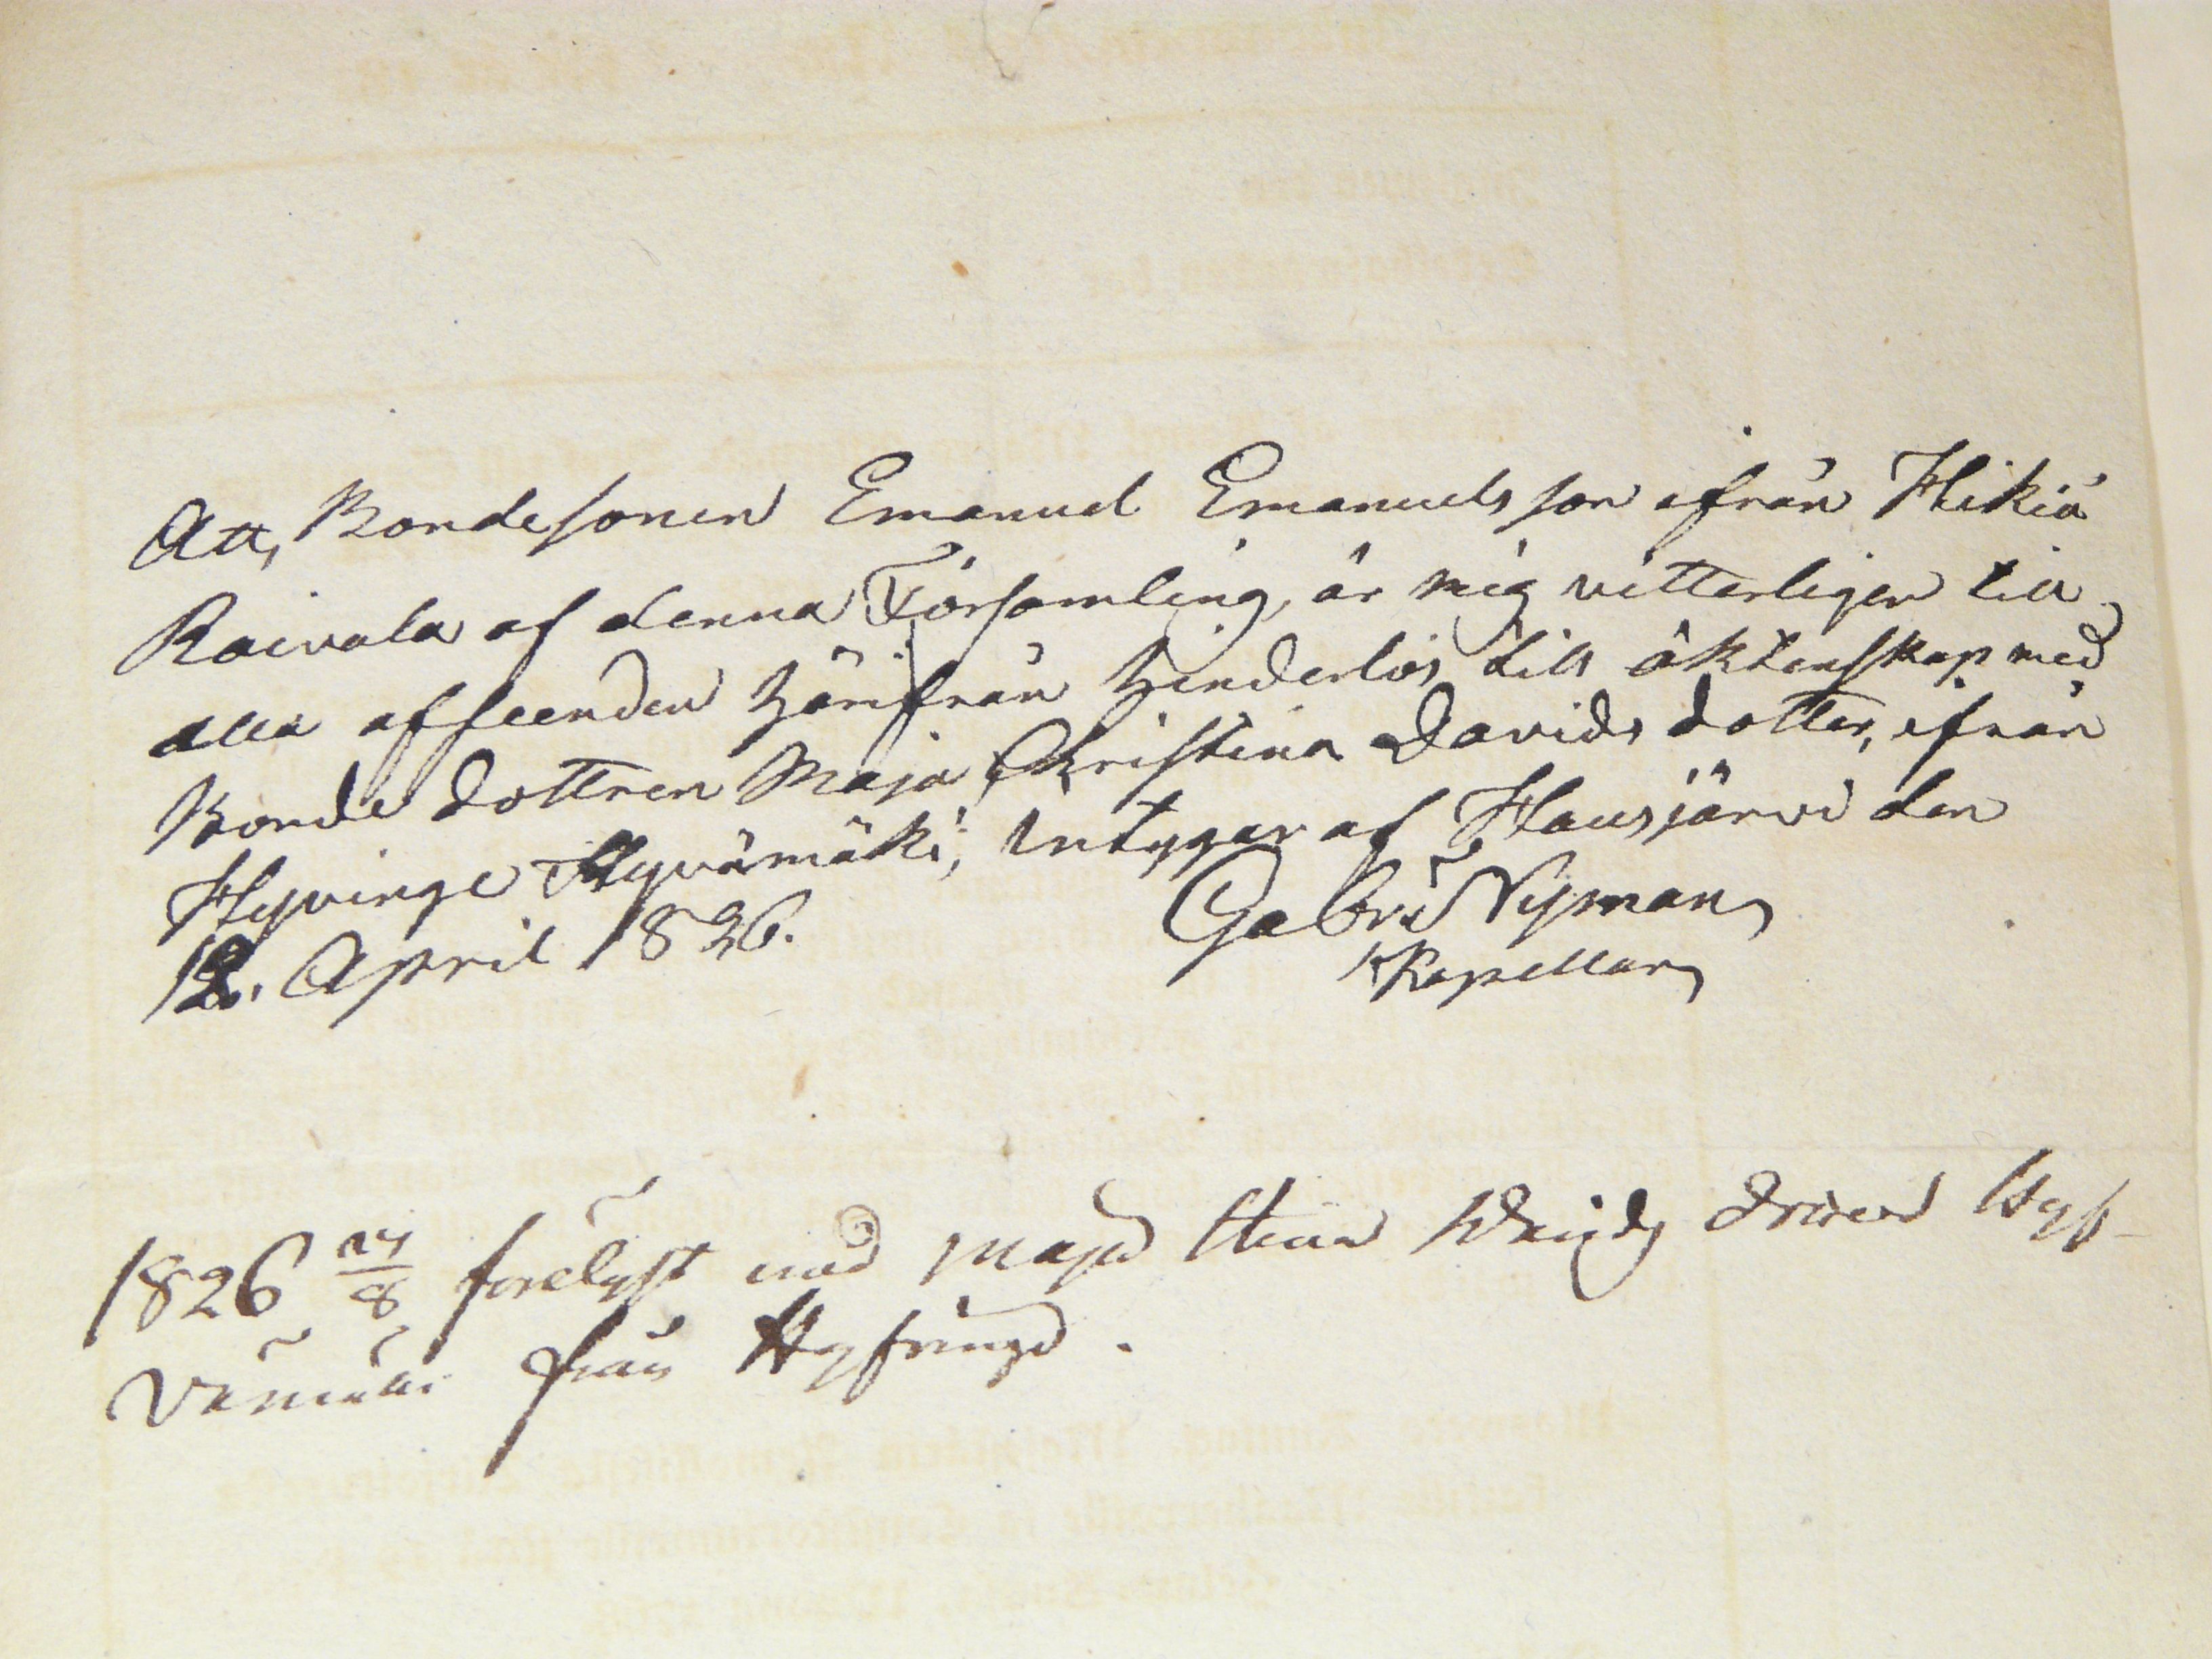 Att, Bondesonen Emanuel Emanuelsson ifrån Hikiä
Raivala af denna Församling, är mig vitterligen till
alla afseenden härifrån hinderlös till äktenskap med
Bonde dottren Maja Christina Davids dotter, ifrån
Hyvinge Hyvämäki, intygar af Hausjärvi den
12. April 1826. Gabri Nyman
Kapellan
1826 24/8 förelyst med Maja Stina Hyf-
från Hyfvinge.